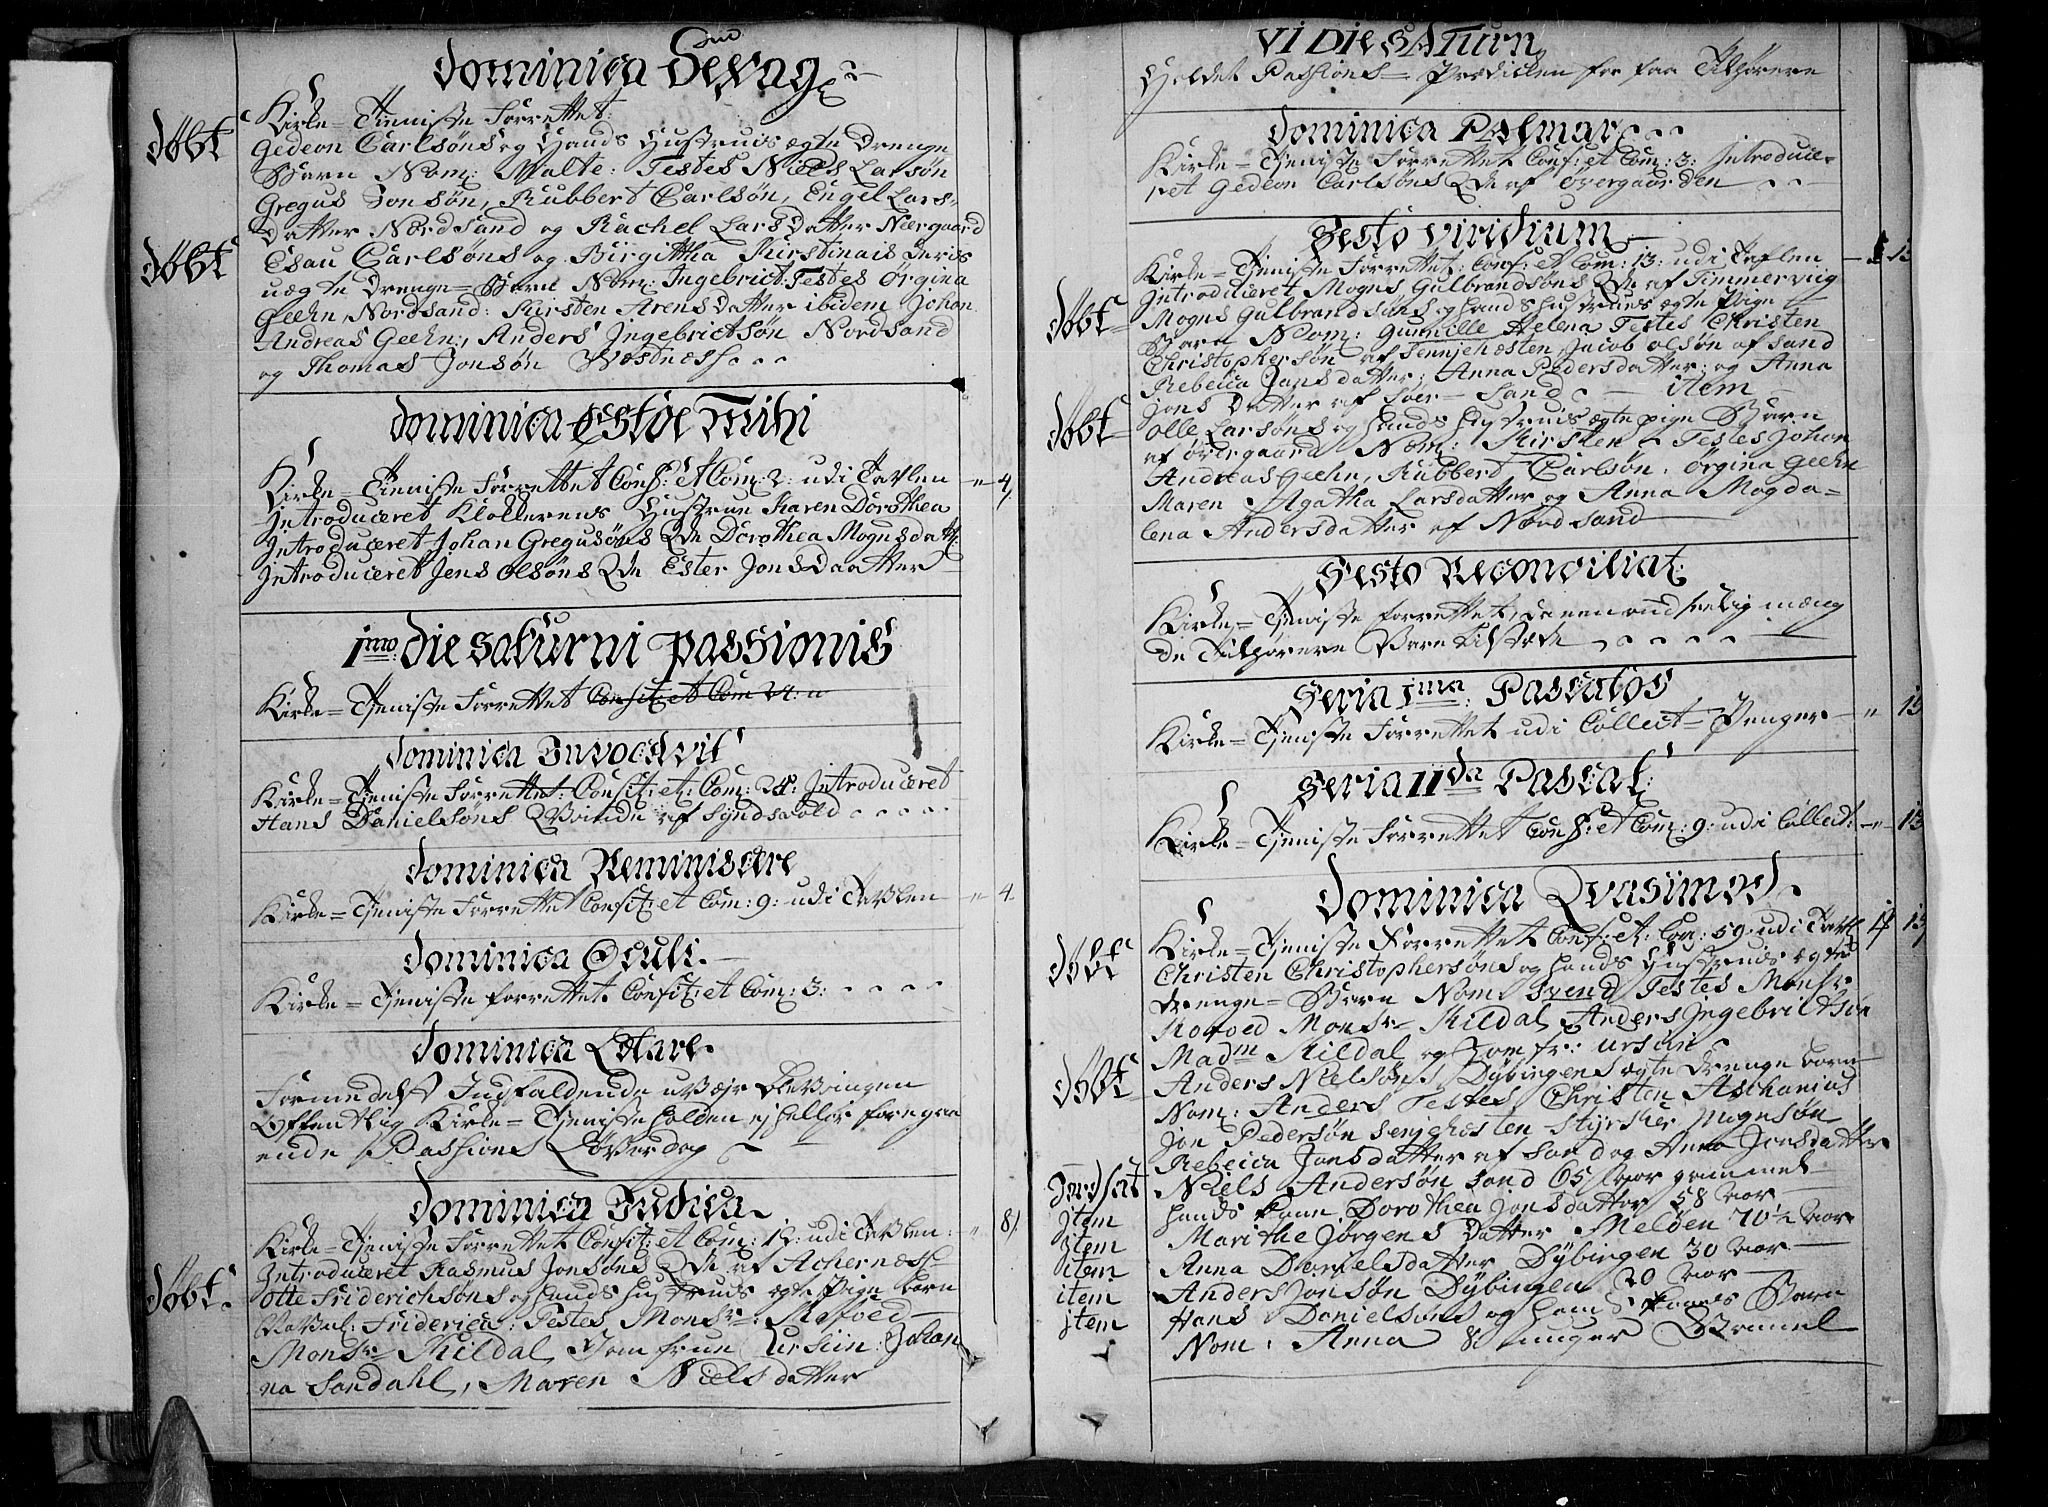 Dominica Sexag:
Døbt Kirke=Tienniste Forrettet:
Gedeon Carlsøns og Hands Hustrues ægte Drenge
Barn Nom: Malte: Testes Niels Larsøn
Gregus Jonsøn, Rubbert Carlsøn, Engel Lars-
datter Nordsand og Rachel Larsdatter Neergaard
Døbt Esau Carlsøns og Birgitha Kirstina
uægte Drenge=Barn Nom: Ingebrict: Testes Ørgina
Geehn, Nordsand: Kirsten Arensdatter ibidem Johan
Andreas Geehn:, Anders Ingebrictsøn Nordsand
og Thomas Jonsøn Wæstness
Dominica Esto Mihi
Kirke=Tienniste Forrettet Conf: et Com: 2: udi Tavlen " 4
Introduceret Klokkerens Hustrue Karen Dorothea
Introduceret Johan Gregusøns Qde Dorothea Mognsdatt:
Introduceret Jens Olsøns Qde Ester Jonsdaatter
1mo die saturni passionis
Kirke=Tjeniste Forrettet Confit: et Com 24:
Dominica Invocavit
Kirke=Tjeniste Forrettet: Confit: et: Com: 24: Introduceret
Hans Danielsøns Qvinde af Syndsvold
Dominica Reminiscere
Kirke=Tjeniste Forrettet Confit: et Com: 9: udi Tavlen " 4
Dominica Oculi
Kirke=Tjeniste forrettet Confit: et Com: 3:
Dominica Letare
Formedelst Indfaldende uveir blev ingen
Offentlig Kirke=Tjeniste holden ej heller foregaa
ende Passions Løverdag
Dominica Judica
Kirke=Tjeniste Forrettet Confit: et Com: 12: udi Tavlen: " 8
Introduceret Rasmus Jonsøns Qde af Achernæss
Døbt: Otte Friderichsøns og hands hustrues ægte Pige barn
Friderica: Testes Monsr: Mofoed
Monsr Kildal Jomfrue Ursiin: Johan
na Sandahl, Maren Nielsdatter
VI Die Saturn
Holdet Passions=Prædicken for faa Tilhørere
Dominica Palmar
Kirke=Tjeniste Forrettet Conf: et Com: 3: Introduce-
ret Gedeon Carlsøns Qde af Øvergaarden
Festo viridium
Kirke=Tjeniste Forrettet: Conf: et Com: 13: udi Taflen
Introduceret Mogns Gulbrandsøns Qde af Timmerviig
Døbt Mogns Gulbrandsøns og hands hustrues ægte Pige
Barn Nom: Gunnille Helena Testes Christen
Christophersøn af Tennjehæsten, Jacob Olsøn af Sand
Rebecca Jansdatter, Anna Pedersdatter: og Anna
Jons Datter af Sand: item
Døbt Olle Larsøns og hands hustrues ægte pige Barn
af Øvergaard Nom: Kirsten Testes Johan
Andreas Geehn, Rubbert Carlsøn, Ørgina Geehn
Maren Agatha Larsdatter og Anna Magda-
lena Andersdatter af Nordsand
Festo Reconciliat:
Kirke=Tjeniste forrettet, da een andseelig mæng
de Tilhørere Vare tilstede
Feria 1ma Paschatos
Kirke=Tjeniste Forrettet udi Collect=Penger " 15
Feria IIda Pascat:
Kirke=Tjeniste Forrettet Conf: et Com: 9: udi Collect: " 13
Dominica Qvasimod
Kirke=Tjeniste Forrettet Conf: et: Com: 59: udi Tavl
Døbt Christen Christophersøns og hands hustrues ægte
Drenge=Barn Nom: Svend Testes Monsr
Mofoed Monsr Kildal Anders Ingebrictsøn
Madm Kildal og Jomfr: Ursiin
Døbt Anders Nielsøns Dybingens ægte Drenge barn
Nom: Anders Testes Christen Aschanius
Jon Pedersøn Senjehæsten Styrsker Mognsøn
Rebecca Jansdatter af Sand og Anna Jonsdatter
Jordsat Niels Andersøn Sand 65 Aar gammel
Item hands Kone Dorothea Jonsdatter 58 Aar
Item Marithe Jørgens Datter Meløen 70½ Aar
item Anna Danielsdatter Dybingen 30 Aar
item Anders Jonsøn Dybingen 20 Aar
Item Hans Danielsøns og hans Kones Barn
Nom: Anna 8 uuger Gammel